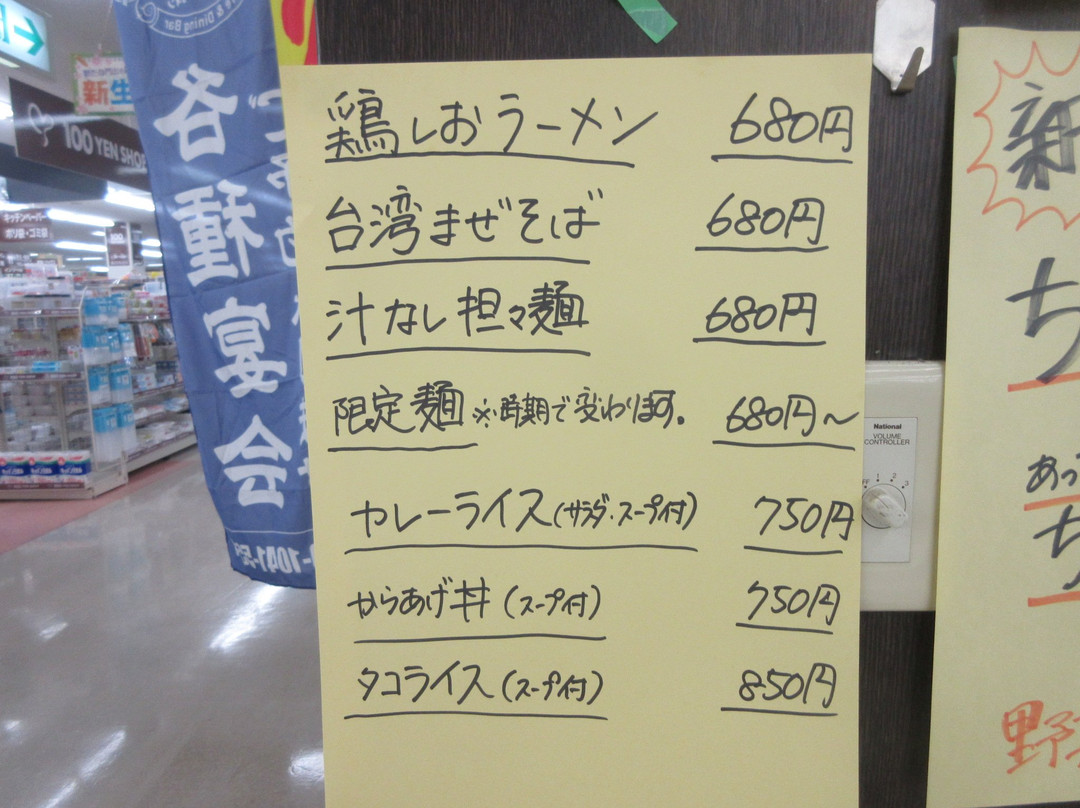 鶏しおラーメン 680円
台湾まぜそば 680円
汁なし担々麺 680円
限定麺 ※時期で変わります。 680円～
カレーライス(サラダ・スープ付) 750円
からあげ丼(スープ付) 750円
タコライス(スープ付) 850円
各種宴会
& Dining Bar
新生
100 YEN SHOP
キッチンペーパー
ポリ袋・ゴミ袋
National
VOLUME
CONTROLLER
1 2 3
新
ち
あっ
ち
野